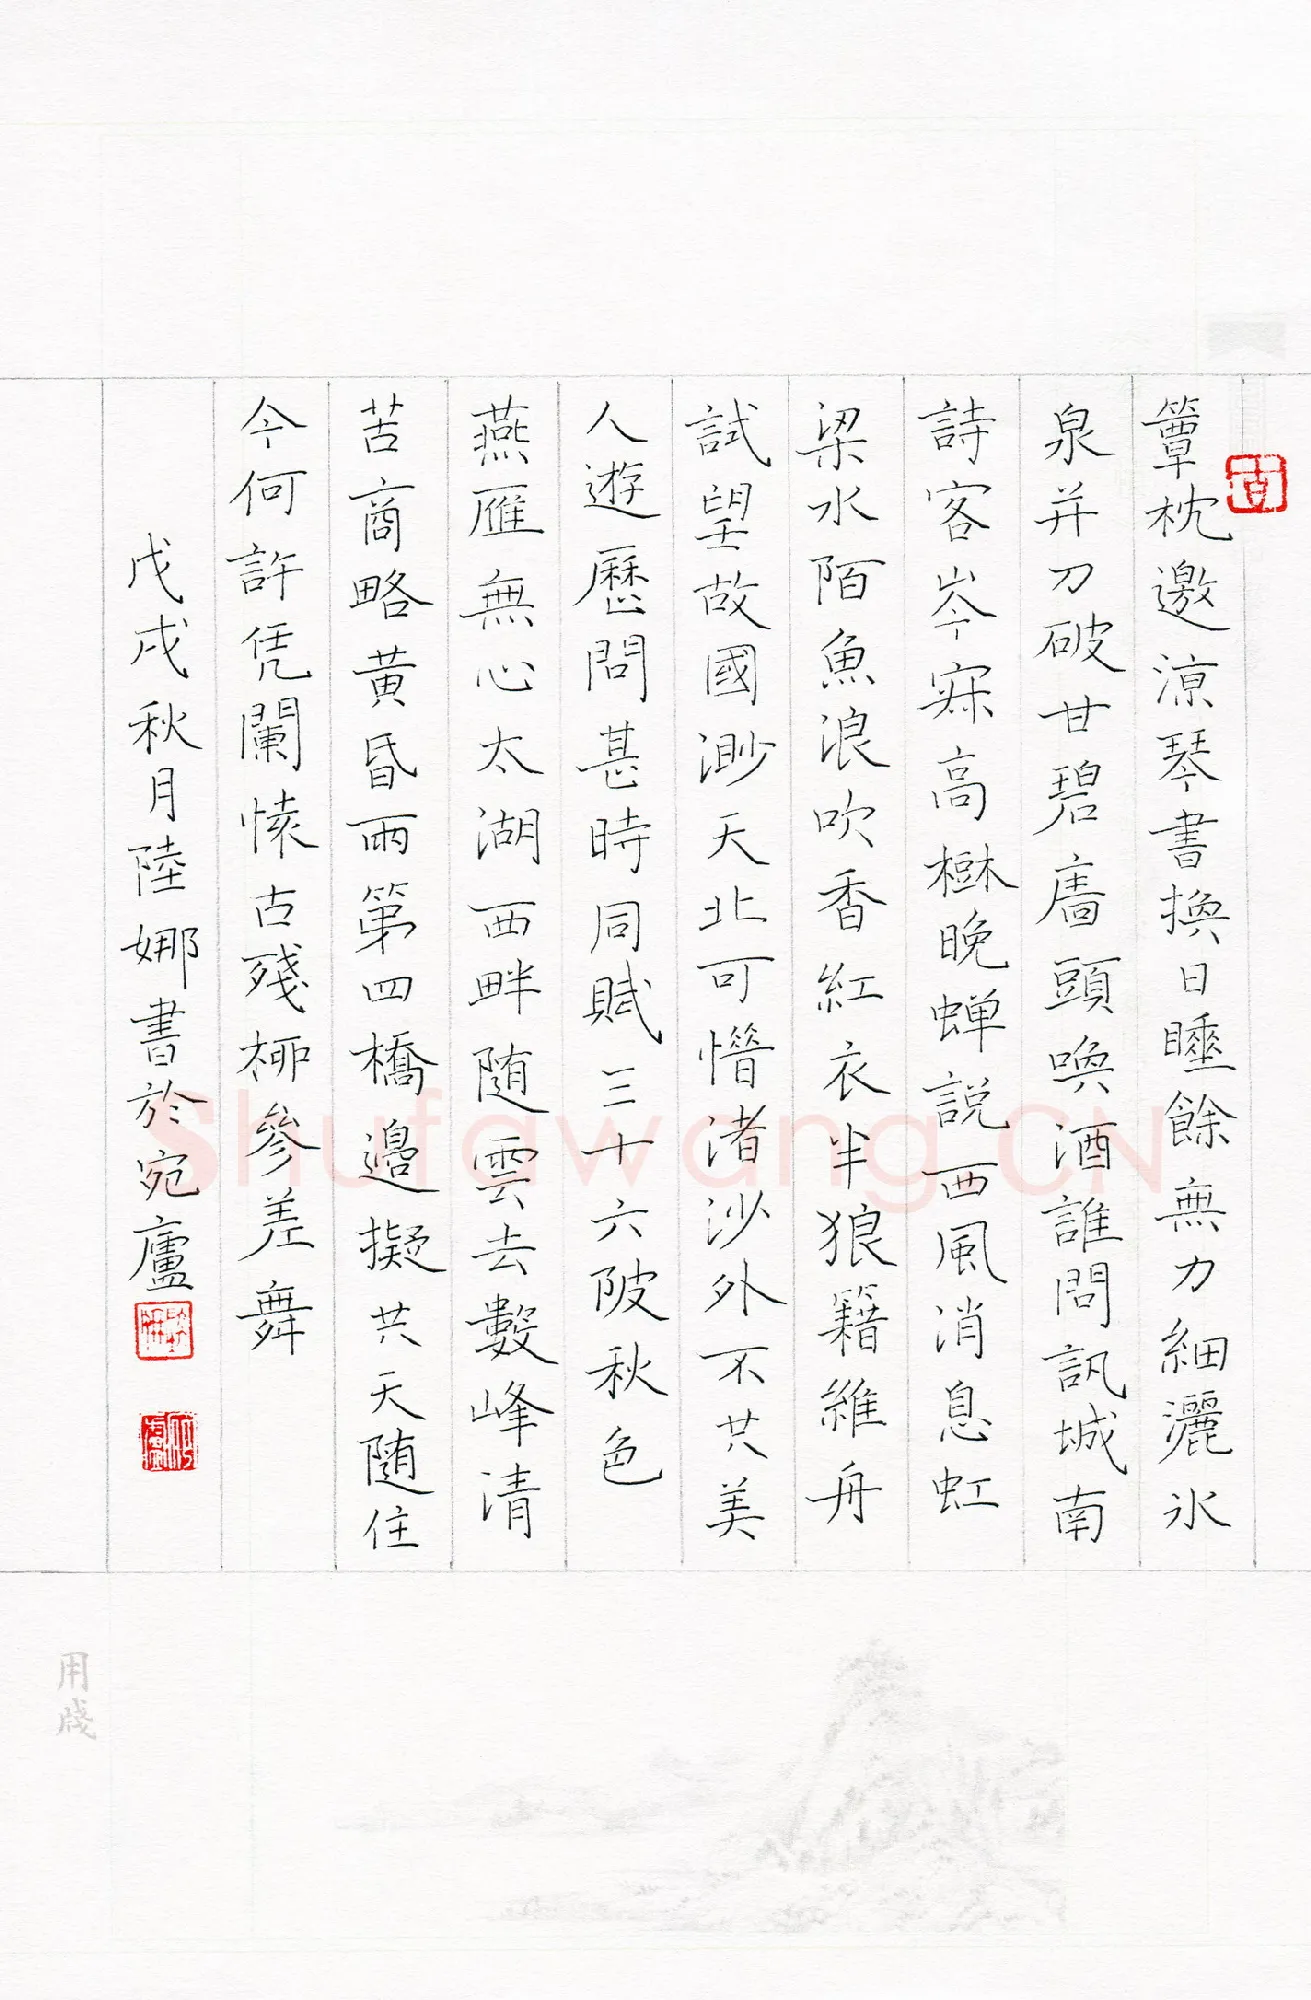 簟枕邀涼琴書換日睡餘無力細灑冰
泉并刀破甘碧牆頭喚酒誰問訊城南
詩客岑寂高樹晚蟬説西風消息虹
梁水陌魚浪吹香紅衣半狼籍維舟
試望故國渺天北可惜渚沙外不共美
人遊歷問甚時同賦三十六陂秋色
燕雁無心太湖西畔随雲去數峰清
苦商略黃昏雨第四橋邊擬共天随住
今何許凭闌懷古殘柳參差舞
戊戌秋月陸娜書於宛廬
用牋
Shufawang.CN